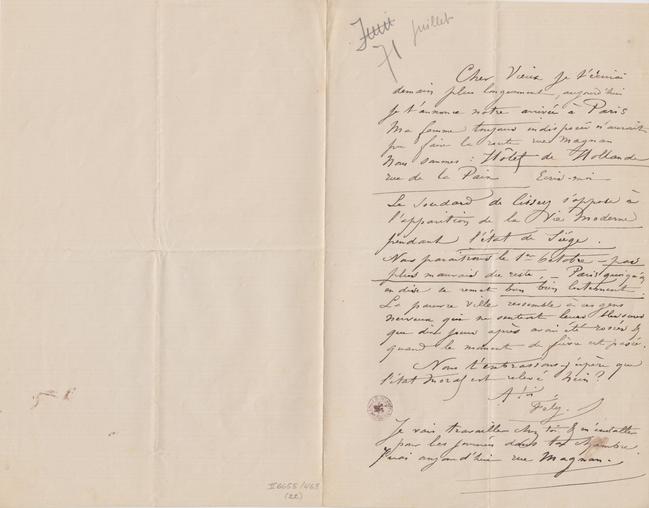 Juin juillet
71
Cher Vieux je t'écrirai
demain plus longuement, aujourd'hui
je t'annonce notre arrivée à Paris
Ma femme toujours indisposée n'aurait
pu faire la route rue Magnan
Nous sommes : Hôtel de Hollande
rue de la Paix Ecris-moi
Le Soudard de Cissey s'oppose à
l'apparition de la Vie Moderne
pendant l'état de Siège.
Nous paraitrons le 1er Octobre - pas
plus mauvais du reste, - Paris quoiqu'on
en dise se remet bien bien lentement.
La pauvre ville ressemble à ces gens
nerveux qui ne sentent leurs blessures
que dix jours après avoir été rossés &
quand le moment de fièvre est passé.
Nous t'embrassons j'espère que
l'état moral est relevé hein?
A toi
Fély.
Je vais travailler chez toi & m'installer
pour les journées dans ta chambre.
J'irai aujourd'hui rue Magnan.
II 6655/463
(22)